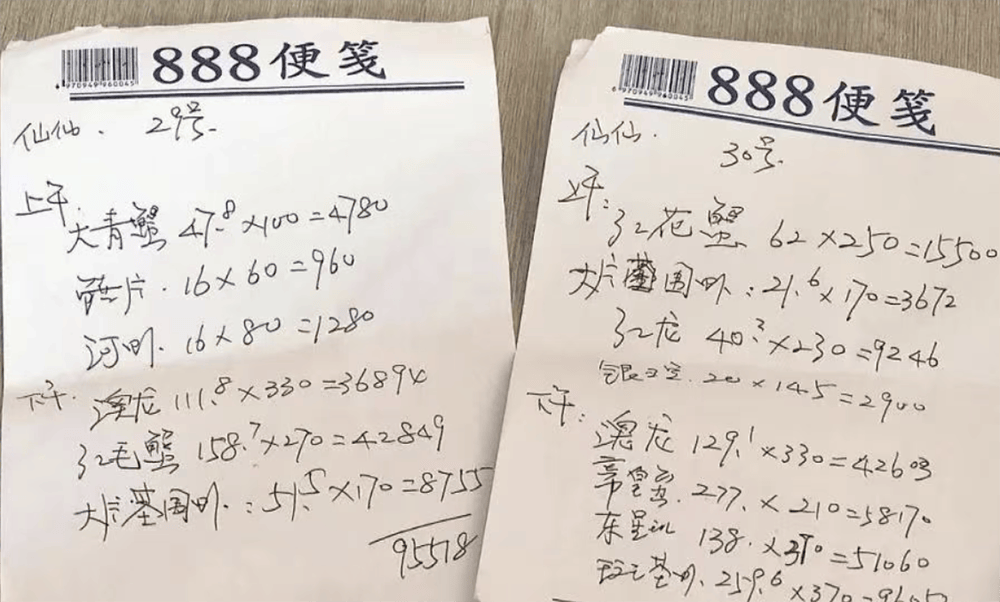 6970949960045
888便笺
仙仙. 29号.
上午. 大青蟹 47.8×100=4780
片. 16×60=960
河虾. 16×80=1280
下午. 澳龙 111.8×330=36894
红毛蟹 158.7×270=42849
大片基围虾.: 51.5×170=8755
95518
6970949960045
888便笺
仙仙. 30号.
上午: 红花蟹 62×250=15500
大片基围虾.: 21.6×170=3672
红龙 40.2×230=9246
20×145=2900
下午: 澳龙 129.1×330=42603
帝皇蟹. 277.×210=58170
东星斑 138.×370=51060
259.6×370=